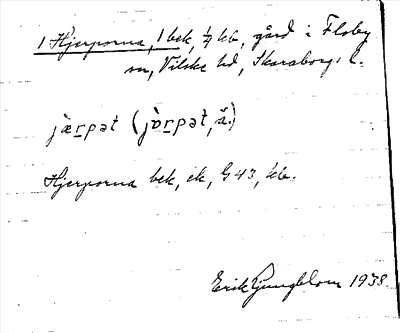 1 Hjerporna, 1 bek, 1/4 kb, gård i Floby
sn, Vilske hd, Skaraborgs l.
jærpət (jɒrpət, ä.)
Hjerporna bek, ek, G43, kb.
Erik Ljungblom 1938.